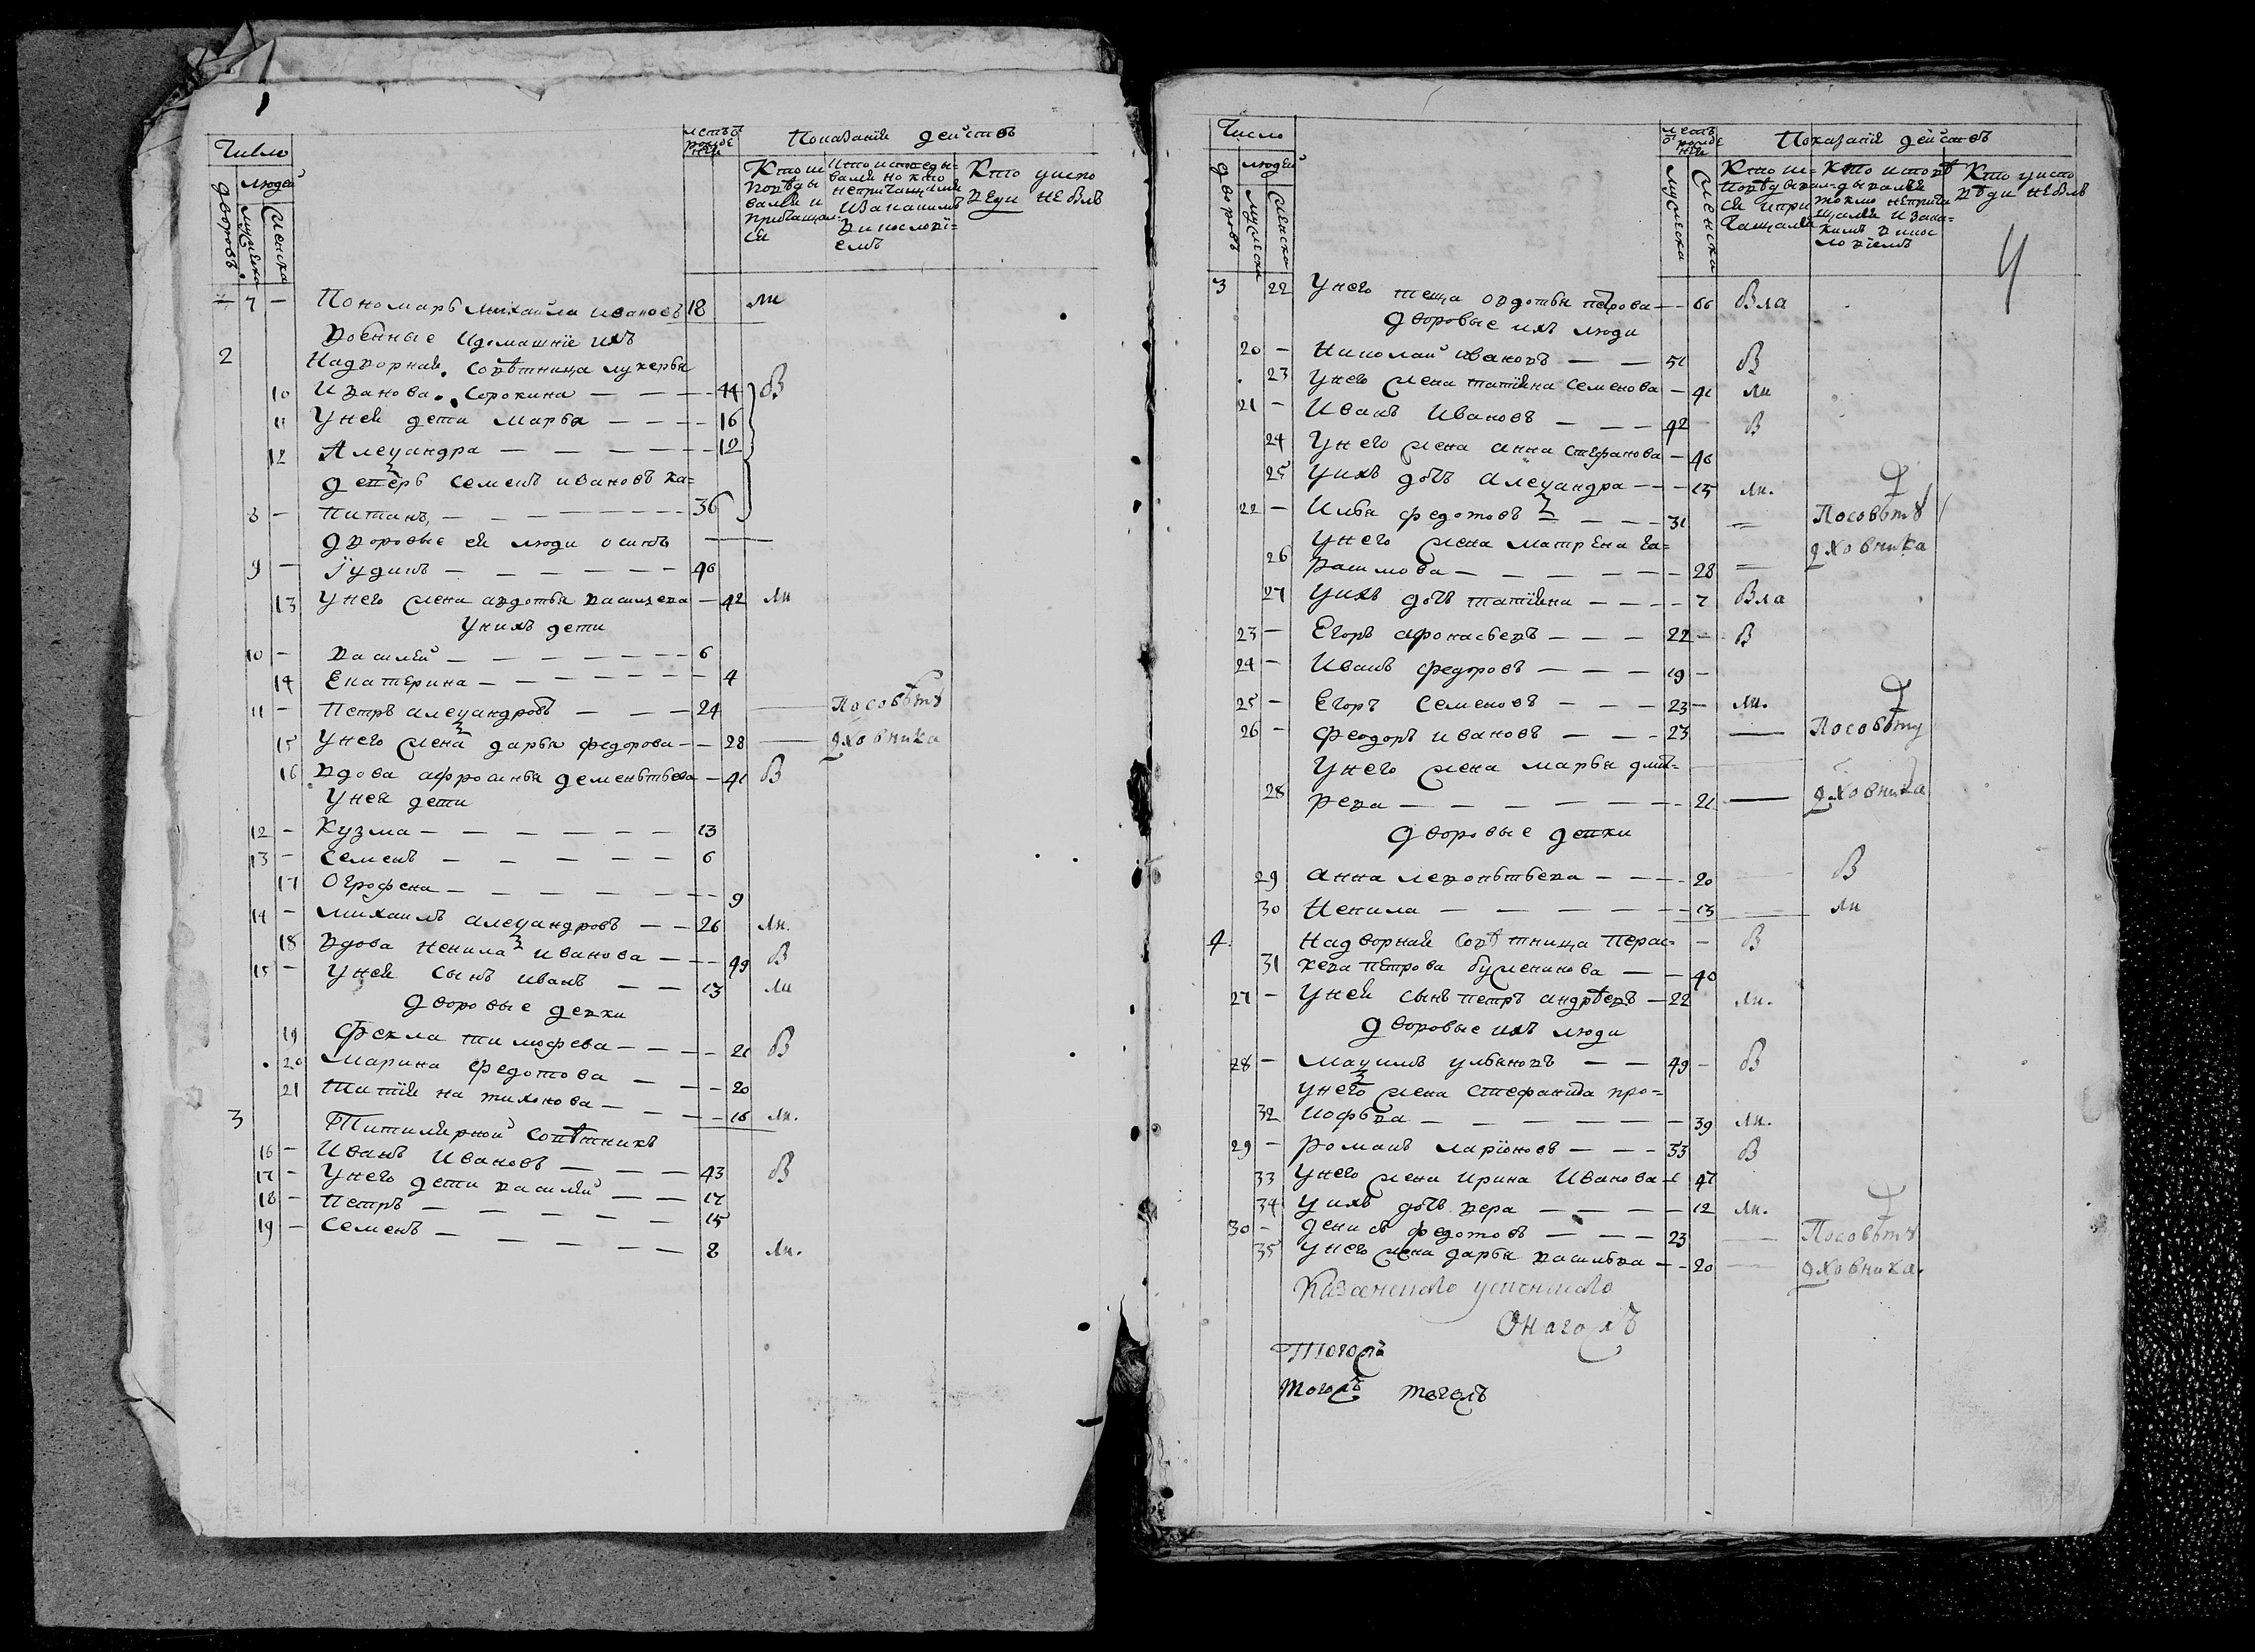 Число
людей
дворовъ
мужеска
женска
летъ от рожде нїя
Показанїе действъ
Кто исповѣдывался и причащался
Кто исповедывался но кто не причащался и за какимъ винословїемъ
Кто у исповеди не былъ
7 — Пономарь михаила ивановъ 18 ли
Военные и домашнїе ихъ
2 Надворная совѣтница лукерья
10 Иванова Сорокина — — — 44 В
11 У ней дети марья — — — 16
12 Алеѯандра — — — — — 12
детерь семенъ ивановъ ка=
8 — питанъ — — — — — 36
дворовые ей люди осипъ
9 — Іудинъ — — — — — — 46
13 У него жена авдотья василева — 42 ли
У нихъ дети
10 — василей — — — — — — 6
14 Екатерина — — — — — — 4
11 — Петръ алеѯандровъ — — — 24 — По совѣту
15 У него жена дарья федорова — — 28 — дховника
16 вдова афросинья дементьева — 41 В
У ней дети
12 — Кузма — — — — — 13
13 — семенъ — — — — — 6
17 Огрофена — — — — — — 9
14 — михаилъ алеѯандровъ — — 26 ли.
18 вдова ненила иванова — — — 49 В
15 — У ней сынъ иванъ — — 13 ли
дворовые девки
19 Фекла тимофева — — — 21 В
20 марина федотова — — — 20
21 Татїяна тихонова — — — — 16 ли.
3 Титулярной совѣтникъ
16 — Иванъ Ивановъ — — — 43 В
17 — У него дети василей — — 17
18 — Петръ — — — — — 15
19 — семенъ — — — — — 8 ли.
Число
людей
дворовъ
мужеска
женска
летъ от рождe нїя
мужеска
женска
Показанїе действъ
Кто исповѣдывался и причащался
Кто исповѣдывался токмо не причащался и за каким винословїемъ
Кто у исповѣди не былъ
4
3 22 У него теща овдотья петрова — — 66 Вла
дворовые ихъ люди
20 — Николай ивановъ — — 51 В
23 У него жена татїяна семенова — 41 ли
21 — Иванъ Ивановъ — — — 42 В
24 У него жена анна стефанова — 40
25 У ихъ дочь алеѯандра — — — 15 ли.
22 — Илья федотовъ — — — 31 = По совѣту
У него жена матрена га=
дховника
26 вашлова — — — — — — 28 =
27 У ихъ дочь татїяна — — — — 7 Вла
23 — Егоръ афонасьевъ — — — 22 — В
24 — Иванъ федоровъ — — — 19 —
25 — Егоръ Семеновъ — — — 23 — ли.
26 — феодоръ ивановъ — — — 23 — По совѣту
У него жена марья дмит=
28 рева — — — — — — 21 — дховника
дворовые девки
29 анна леконьтьева — — — 20 В
30 Ненила — — — — — — 13 ли
4. надворная совѣтница Перас= — В
31 кева петрова буженинова — — 40
27 — У ней сынъ петръ андрѣевъ — 22 ли.
дворовые ихъ люди
28 — маѯимъ ульяновъ — — 49 — В
У него жена стефанида про=
32 кофьва — — — — — — 39 ли.
29 — романъ ларїоновъ — — — 53 В
33 У него жена ирина Иванова — 47
34 У ихъ дочь вера — — — — 12 ли.
30 — денисъ федотовъ — — — 23 — По совѣту
35 У него жена дарья васильва — — 20 — дховника.
Казанскаго успенскаго
Онагожъ
Тогожъ
тогожъ тогожъ